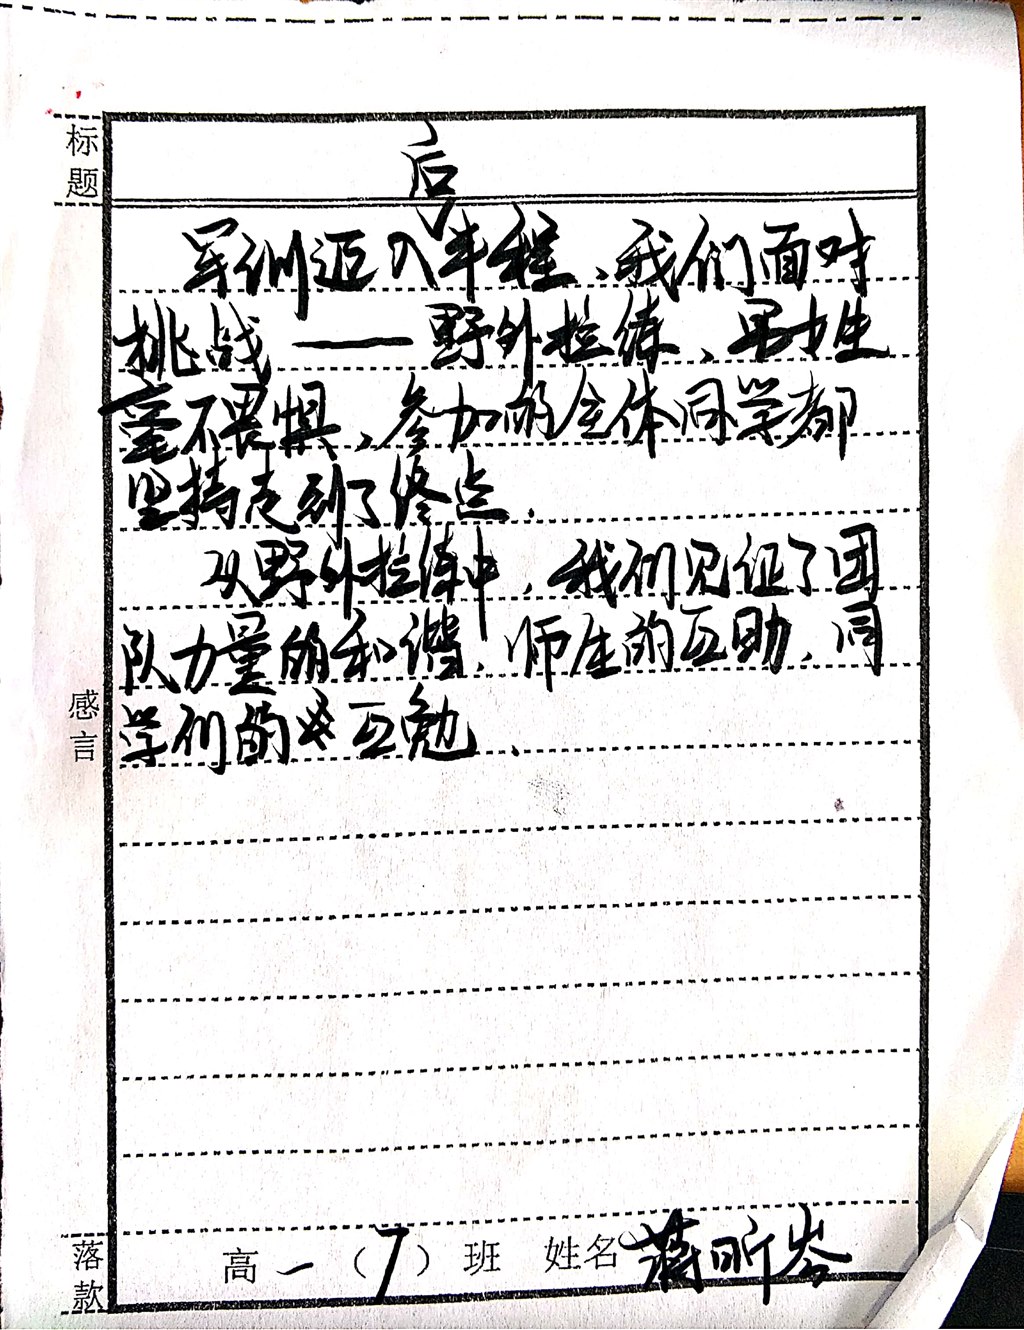 标题
军训迈入后半程、我们面对
挑战——野外拉练、男女生
毫不畏惧、参加的全体同学都
坚持走到了终点.
从野外拉练中,我们见证了团
队力量的和谐、师生的互助、同
学们的互勉.
感言
落款 高一(7)班 姓名 蒋昕岑